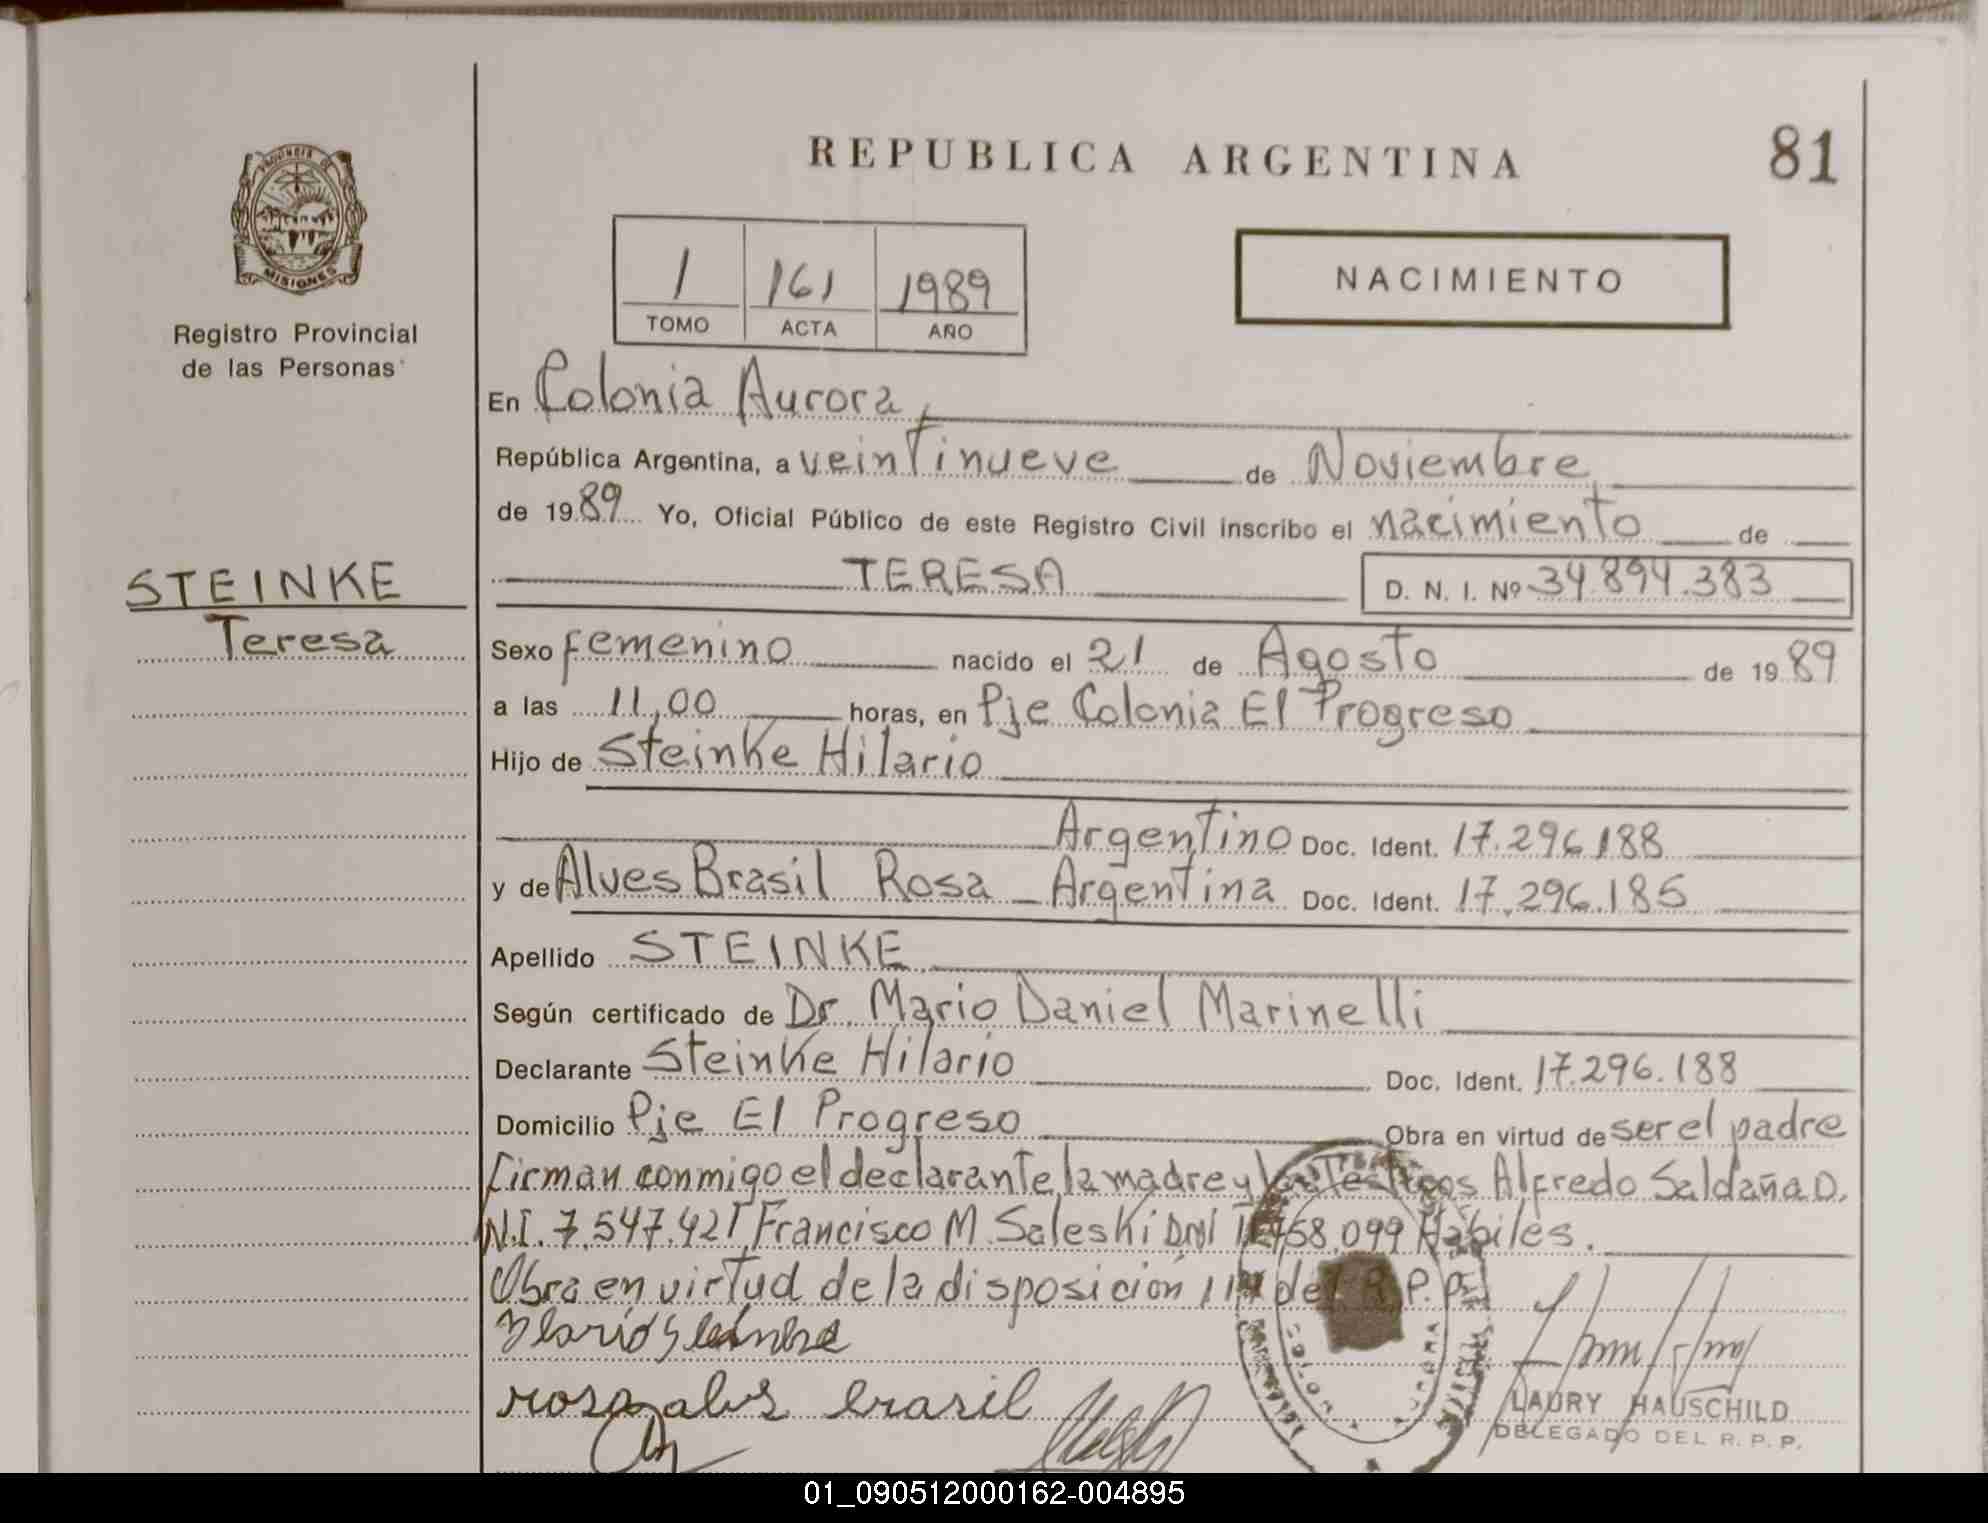 REPUBLICA ARGENTINA
81
PROVINCIA DE
MISIONES
Registro Provincial
de las Personas
1 161 1989
TOMO ACTA AÑO
NACIMIENTO
En Colonia Aurora
República Argentina, a veintinueve de Noviembre
de 1989 Yo, Oficial Público de este Registro Civil inscribo el nacimiento de
STEINKE
Teresa
TERESA D. N. I. Nº 34.894.383
Sexo femenino nacido el 21 de Agosto de 1989
a las 11,00 horas, en Pje Colonia El Progreso
Hijo de Steinke Hilario
Argentino Doc. Ident. 17.296.188
y de Alves Brasil Rosa Argentina Doc. Ident. 17.296.185
Apellido STEINKE
Según certificado de Dr. Mario Daniel Marinelli
Declarante Steinke Hilario Doc. Ident. 17.296.188
Domicilio Pje El Progreso Obra en virtud de ser el padre
firman conmigo el declarante, la madre y los testigos Alfredo Saldaña D.
N.I. 7.547.421 Francisco M. Saleski DNI 758.099 Habiles.
Obra en virtud de la disposición del R.P.P.
rosa alves brasil
LAURY HAUSCHILD
DELEGADO DEL R. P. P.
01_090512000162-004895